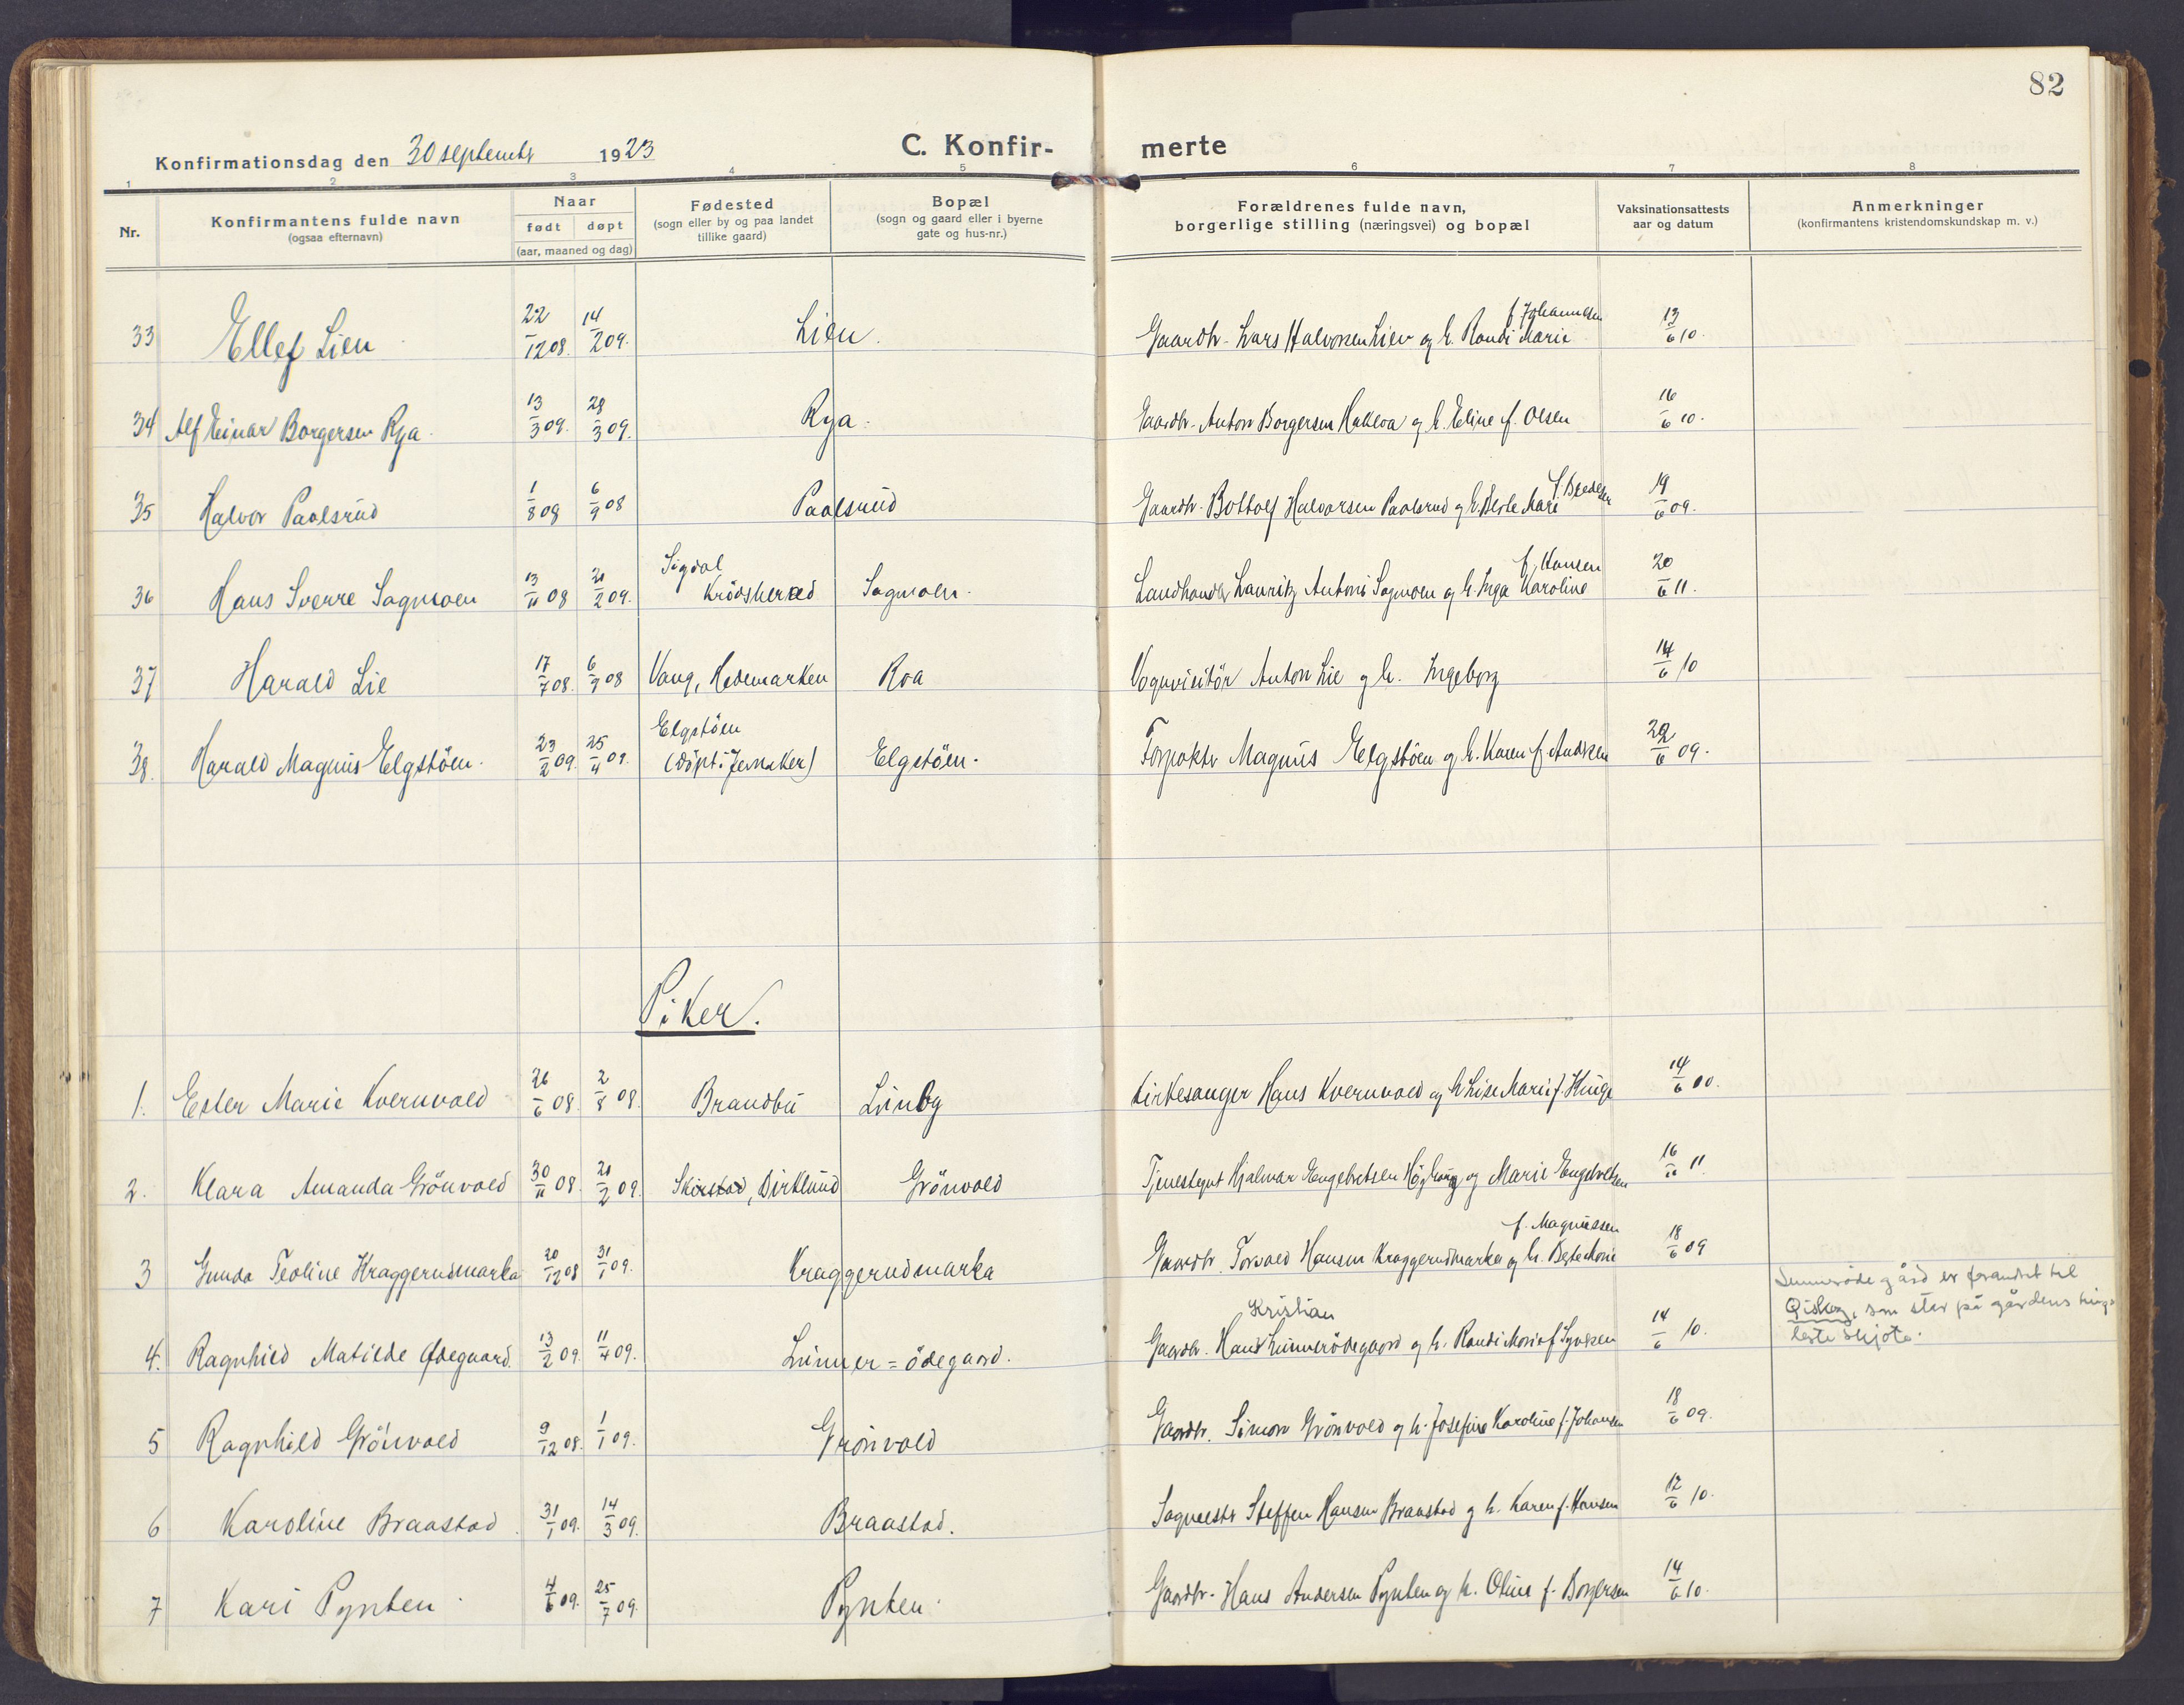 82
Konfirmationsdag den 30 septembr 1923
C. Konfir- merte
1 2 3 4 5 6 7 8
Nr.
Konfirmantens fulde navn
(ogsaa efternavn)
Naar
født døpt
(aar, maaned og dag)
Fødested
(sogn eller by og paa landet
tillike gaard)
Bopæl
(sogn og gaard eller i byerne
gate og hus-nr.)
Forældrenes fulde navn,
borgerlige stilling (næringsvei) og bopæl
Vaksinationsattests
aar og datum
Anmerkninger
(konfirmantens kristendomskundskap m. v.)
33 Ellef Lien 22/12 08. 14/2 09. Lien. Gaardbr. Lars Halvorsen Lien og h. Randi Marie f. Johannesen 13/6 10.
34 Alf Einar Borgersen Rya. 13/3 09. 28/3 09. Rya. Gaardbr. Anton Borgersen Hakloa og h. Eline f. Olsen 16/6 10.
35 Halvor Paalsrud 1/8 08 6/9 08 Paalsrud Gaardbr. Bottolf Halvorsen Paalsrud og h. Berte Mari 19/6 09.
36 Hans Sverre Sagmoen 13/11 08 21/2 09. Sigdal Krødsherad Sagmoen. Landhandlr Lauritz Antoni Sagmoen og h. Inga Karoline f. Hansen 20/6 11.
37 Harald Lie 17/7 08. 6/9 08 Vang, Hedemarken Roa Vognvisitør Anton Lie og h. Ingeborg 14/6 10
38. Harald Magnus Elgstøen. 23/2 09. 25/4 09. Elgstøen (døpt i Jevnaker) Elgstøen. Forpaktr Magnus Elgstøen og h. Karen f. Andersen 22/6 09.
Piker.
1. Ester Marie Kvernvold 26/6 08. 2/8 08. Brandbu Lunby Kirkesanger Hans Kvernvold og h. Lise Marie f. Hinge 14/6 00.
2. Klara Amanda Grönvold 30/11 08. 21/2 09. Skirstad, Dirklund Grönvold Tjenestegut Hjalmar Engebretsen og Marie Engebretsen 16/11 11.
3 Gunda Teoline Kraggerudmarka 20/12 08 31/1 09. Kraggerudmarka Gaardbr. Torvald Hansen Kraggerudmarka og h. Berte Marie f. Magnussen 18/6 09
4. Ragnhild Matilde Ødegaard. 13/2 09. 11/4 09. Lunner = ödegaard. Gaardbr. Hans Kristian Lunnerödegaard og h. Randi Marie f. Syversen 14/6 10. Lunnerøde gård er forandret til
som står på gårdens ting
leste skjøte.
5 Ragnhild Grönvold 9/12 08. 1/1 09. Grönvold Gaardbr. Simon Grönvold og h. Josefine Karoline f. Johansen 18/6 09.
6 Karoline Braastad 31/1 09. 14/3 09. Braastad. Sagmestr Steffen Hansen Braastad og h. Karen f. Hansen 12/6 10.
7 Kari Pynten. 4/6 09. 25/7 09. Pynten. Gaardbr. Hans Andersen Pynten og h. Oline f. Borgersen 14/6 10.